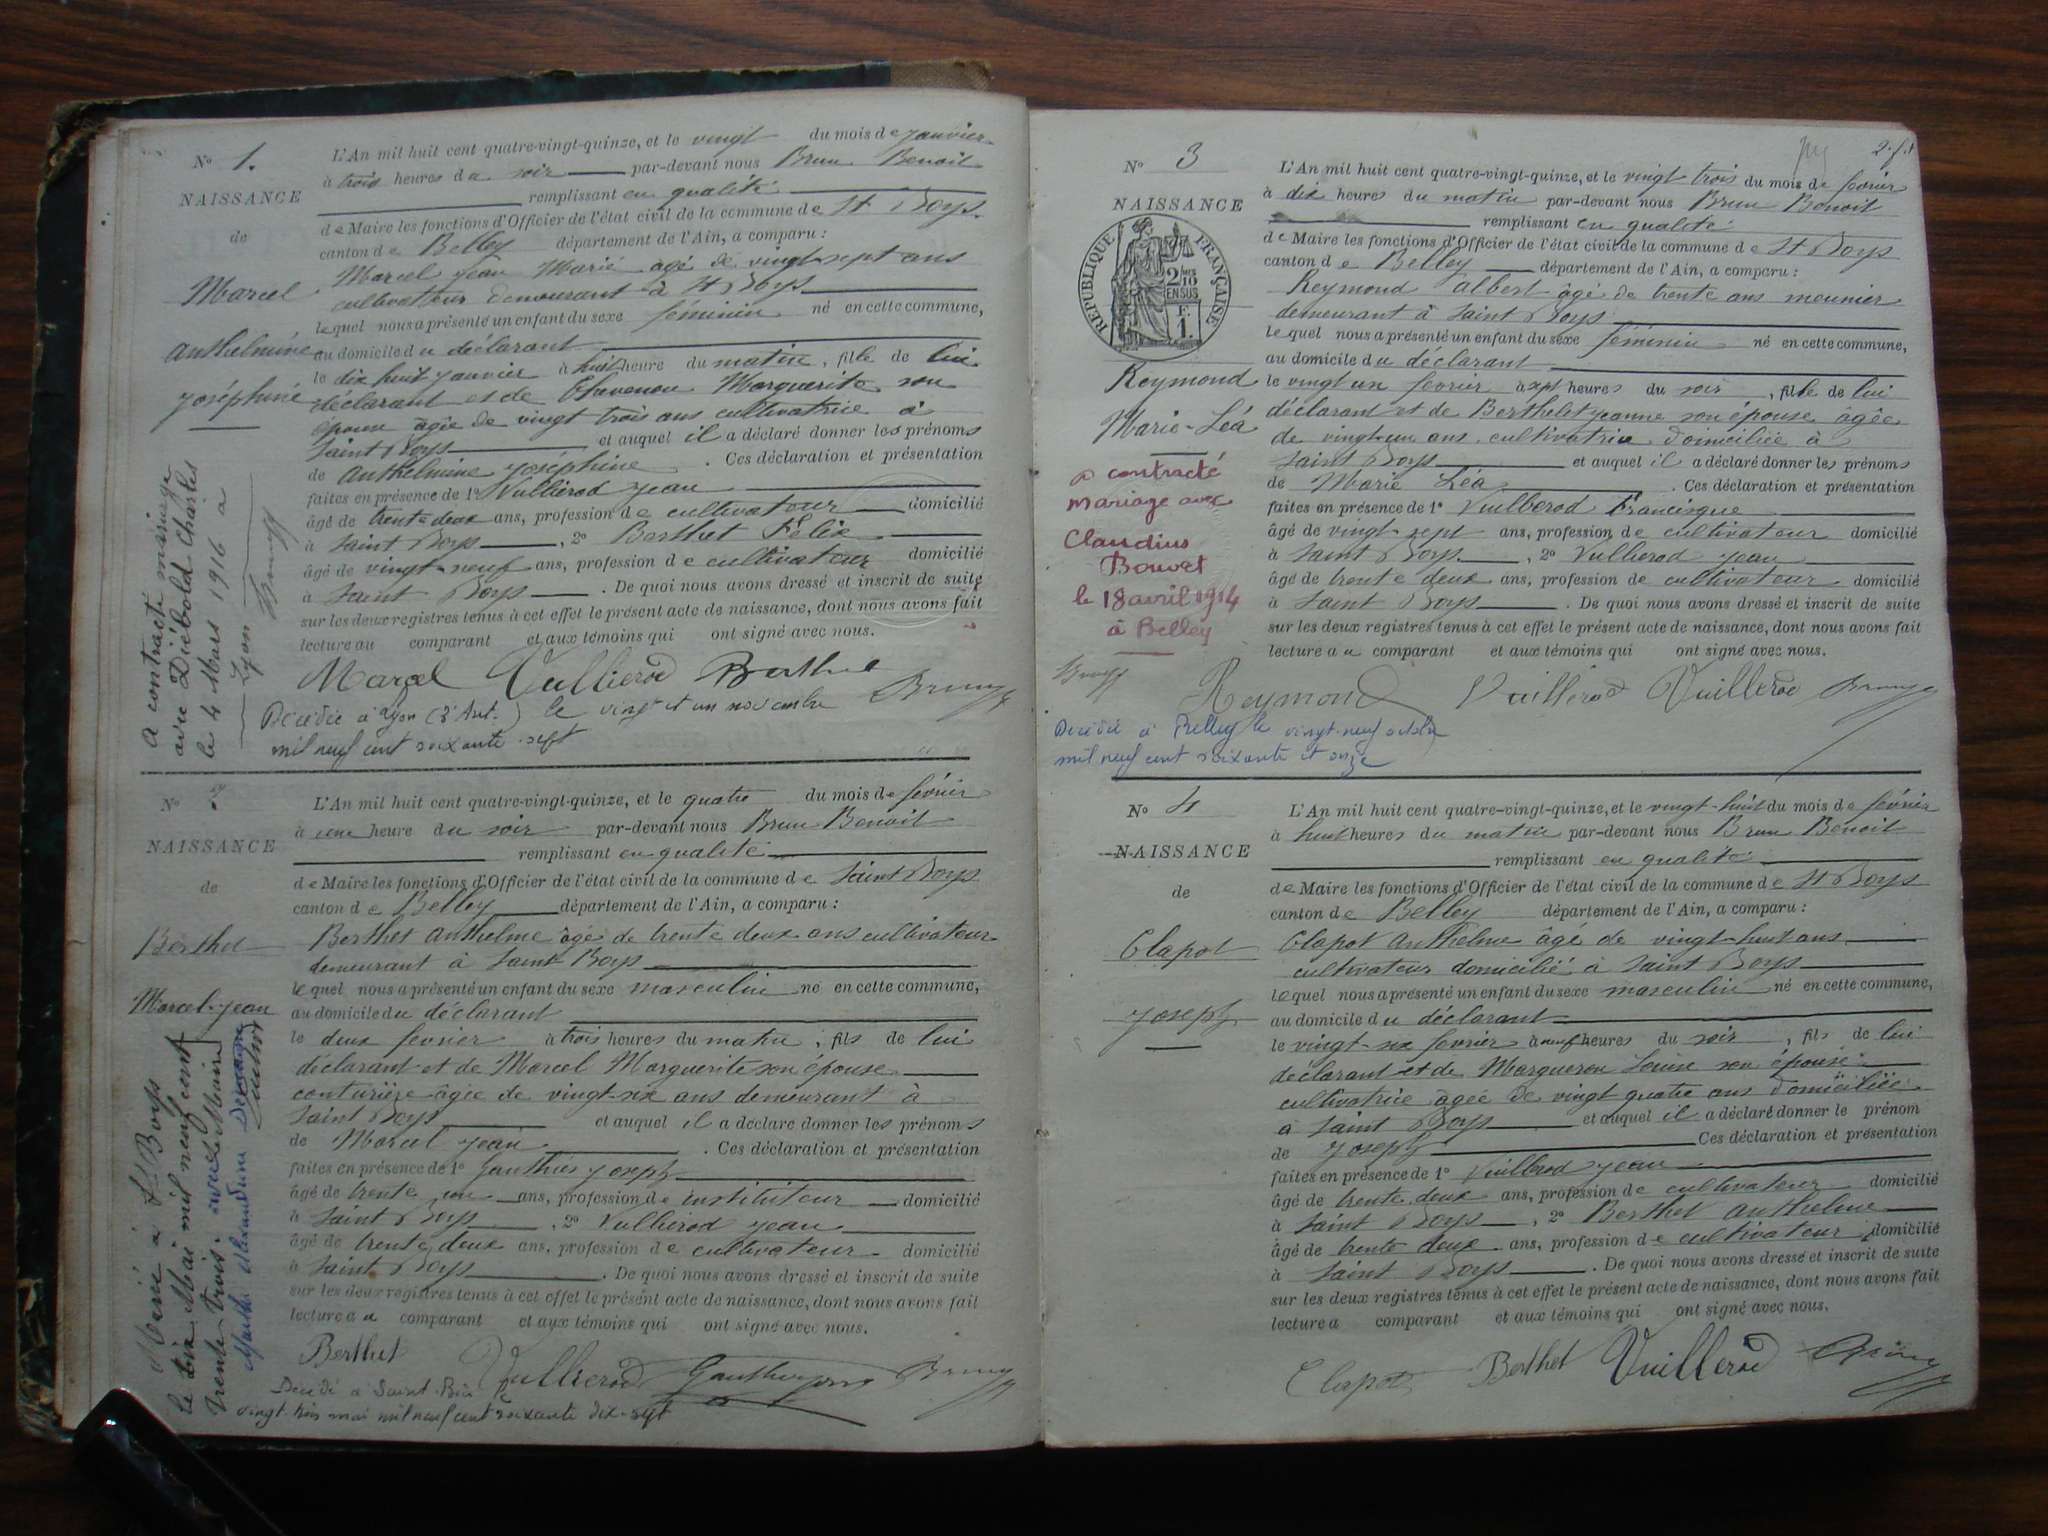 N° 1.
NAISSANCE
de
Marcel
Anthelmine
Joséphine
L'An mil huit cent quatre-vingt-quinze, et le vingt du mois de Janvier
à trois heures du soir par-devant nous Brun Benoit
remplissant en qualité
de Maire les fonctions d'Officier de l'état civil de la commune de St Boys.
canton de Belley département de l'Ain, a comparu :
Marcel Jean Marie âgé de vingt-sept ans
cultivateur demeurant à St Boys
lequel nous a présenté un enfant du sexe féminin né en cette commune,
au domicile du déclarant
le dix huit janvier à huit heure du matin, fille de lui
déclarant et de Marguerite son
épouse âgée de vingt trois ans cultivatrice à
Saint Boys et auquel il a déclaré donner les prénoms
de Anthelmine Joséphine . Ces déclaration et présentation
faites en présence de 1° Vullierod Jean
âgé de trente deux ans, profession de cultivateur domicilié
à Saint Boys, 2° Berthet Félix
âgé de vingt-neuf ans, profession de cultivateur domicilié
à Saint Boys. De quoi nous avons dressé et inscrit de suite
sur les deux registres tenus à cet effet le présent acte de naissance, dont nous avons fait
lecture au comparant et aux témoins qui ont signé avec nous.
Marcel Vullierod Berthet
A contracté mariage
avec Diébold Charles
le 4 Mars 1916 à
Lyon
Décédée à Lyon (3e Arrt.) le vingt et un novembre
mil neuf cent soixante-sept
N°
NAISSANCE
de
Berthet
Marcel-Jean
L'An mil huit cent quatre-vingt-quinze, et le quatre du mois de février
à une heure du soir par-devant nous Brun Benoit
remplissant en qualité
de Maire les fonctions d'Officier de l'état civil de la commune de Saint Boys
canton de Belley département de l'Ain, a comparu :
Berthet Anthelme âgé de trente deux ans cultivateur
demeurant à Saint Boys
lequel nous a présenté un enfant du sexe masculin né en cette commune,
au domicile du déclarant
le deux février à trois heures du matin, fils de lui
déclarant et de Marcel Marguerite son épouse
couturière âgée de vingt-six ans demeurant à
Saint Boys et auquel il a déclaré donner les prénoms
de Marcel Jean . Ces déclaration et présentation
faites en présence de 1° Gauthier Joseph
âgé de trente un ans, profession de instituteur domicilié
à Saint Boys, 2° Vullierod Jean
âgé de trente deux ans, profession de cultivateur domicilié
à Saint Boys. De quoi nous avons dressé et inscrit de suite
sur les deux registres tenus à cet effet le présent acte de naissance, dont nous avons fait
lecture au comparant et aux témoins qui ont signé avec nous.
Berthet Vullierod
Marié à St Boys
le dix Mai mil neuf cent
trente trois. avec
Marthe Alexandrine
Décédé à Saint-Bois le
vingt-trois mai mil neuf cent soixante dix-sept
2.f.
N° 3
NAISSANCE
RÉPUBLIQUE FRANÇAISE
2/10 EN SUS
F. 1.
Reymond
Marie-Léa
L'An mil huit cent quatre-vingt-quinze, et le vingt trois du mois de février
à dix heures du matin par-devant nous Brun Benoit
remplissant en qualité
de Maire les fonctions d'Officier de l'état civil de la commune de St Boys
canton de Belley département de l'Ain, a comparu :
Reymond Albert âgé de trente ans meunier
demeurant à Saint Boys
lequel nous a présenté un enfant du sexe féminin né en cette commune,
au domicile du déclarant
le vingt un février à sept heures du soir, fille de lui
déclarant et de Berthelet Jeanne son épouse âgée
de vingt-un ans cultivatrice domiciliée à
Saint Boys et auquel il a déclaré donner les prénoms
de Marie Léa . Ces déclaration et présentation
faites en présence de 1° Vuillerod Francisque
âgé de vingt-sept ans, profession de cultivateur domicilié
à Saint Boys, 2° Vullierod Jean
âgé de trente deux ans, profession de cultivateur domicilié
à Saint Boys. De quoi nous avons dressé et inscrit de suite
sur les deux registres tenus à cet effet le présent acte de naissance, dont nous avons fait
lecture au comparant et aux témoins qui ont signé avec nous.
Reymond Vuillerod Vuillerod
a contracté
mariage avec
Claudius
Bouvet
le 18 avril 1914
à Belley
Décédée à Belley le vingt-neuf octobre
mil neuf cent soixante et onze
N° 4
NAISSANCE
de
Clapot
Joseph
L'An mil huit cent quatre-vingt-quinze, et le vingt-huit du mois de février
à huit heures du matin par-devant nous Brun Benoit
remplissant en qualité
de Maire les fonctions d'Officier de l'état civil de la commune de St Boys
canton de Belley département de l'Ain, a comparu :
Clapot Anthelme âgé de vingt-huit ans
cultivateur domicilié à Saint Boys
lequel nous a présenté un enfant du sexe masculin né en cette commune,
au domicile du déclarant
le vingt-six février à neuf heures du soir, fils de lui
déclarant et de Margueron son épouse
cultivatrice âgée de vingt quatre ans domiciliée
à Saint Boys et auquel il a déclaré donner le prénom
de Joseph Ces déclaration et présentation
faites en présence de 1° Vuillerod Jean
âgé de trente deux ans, profession de cultivateur domicilié
à Saint Boys, 2° Berthet Anthelme
âgé de trente deux ans, profession de cultivateur domicilié
à Saint Boys. De quoi nous avons dressé et inscrit de suite
sur les deux registres tenus à cet effet le présent acte de naissance, dont nous avons fait
lecture a comparant et aux témoins qui ont signé avec nous.
Clapot Berthet Vuillerod